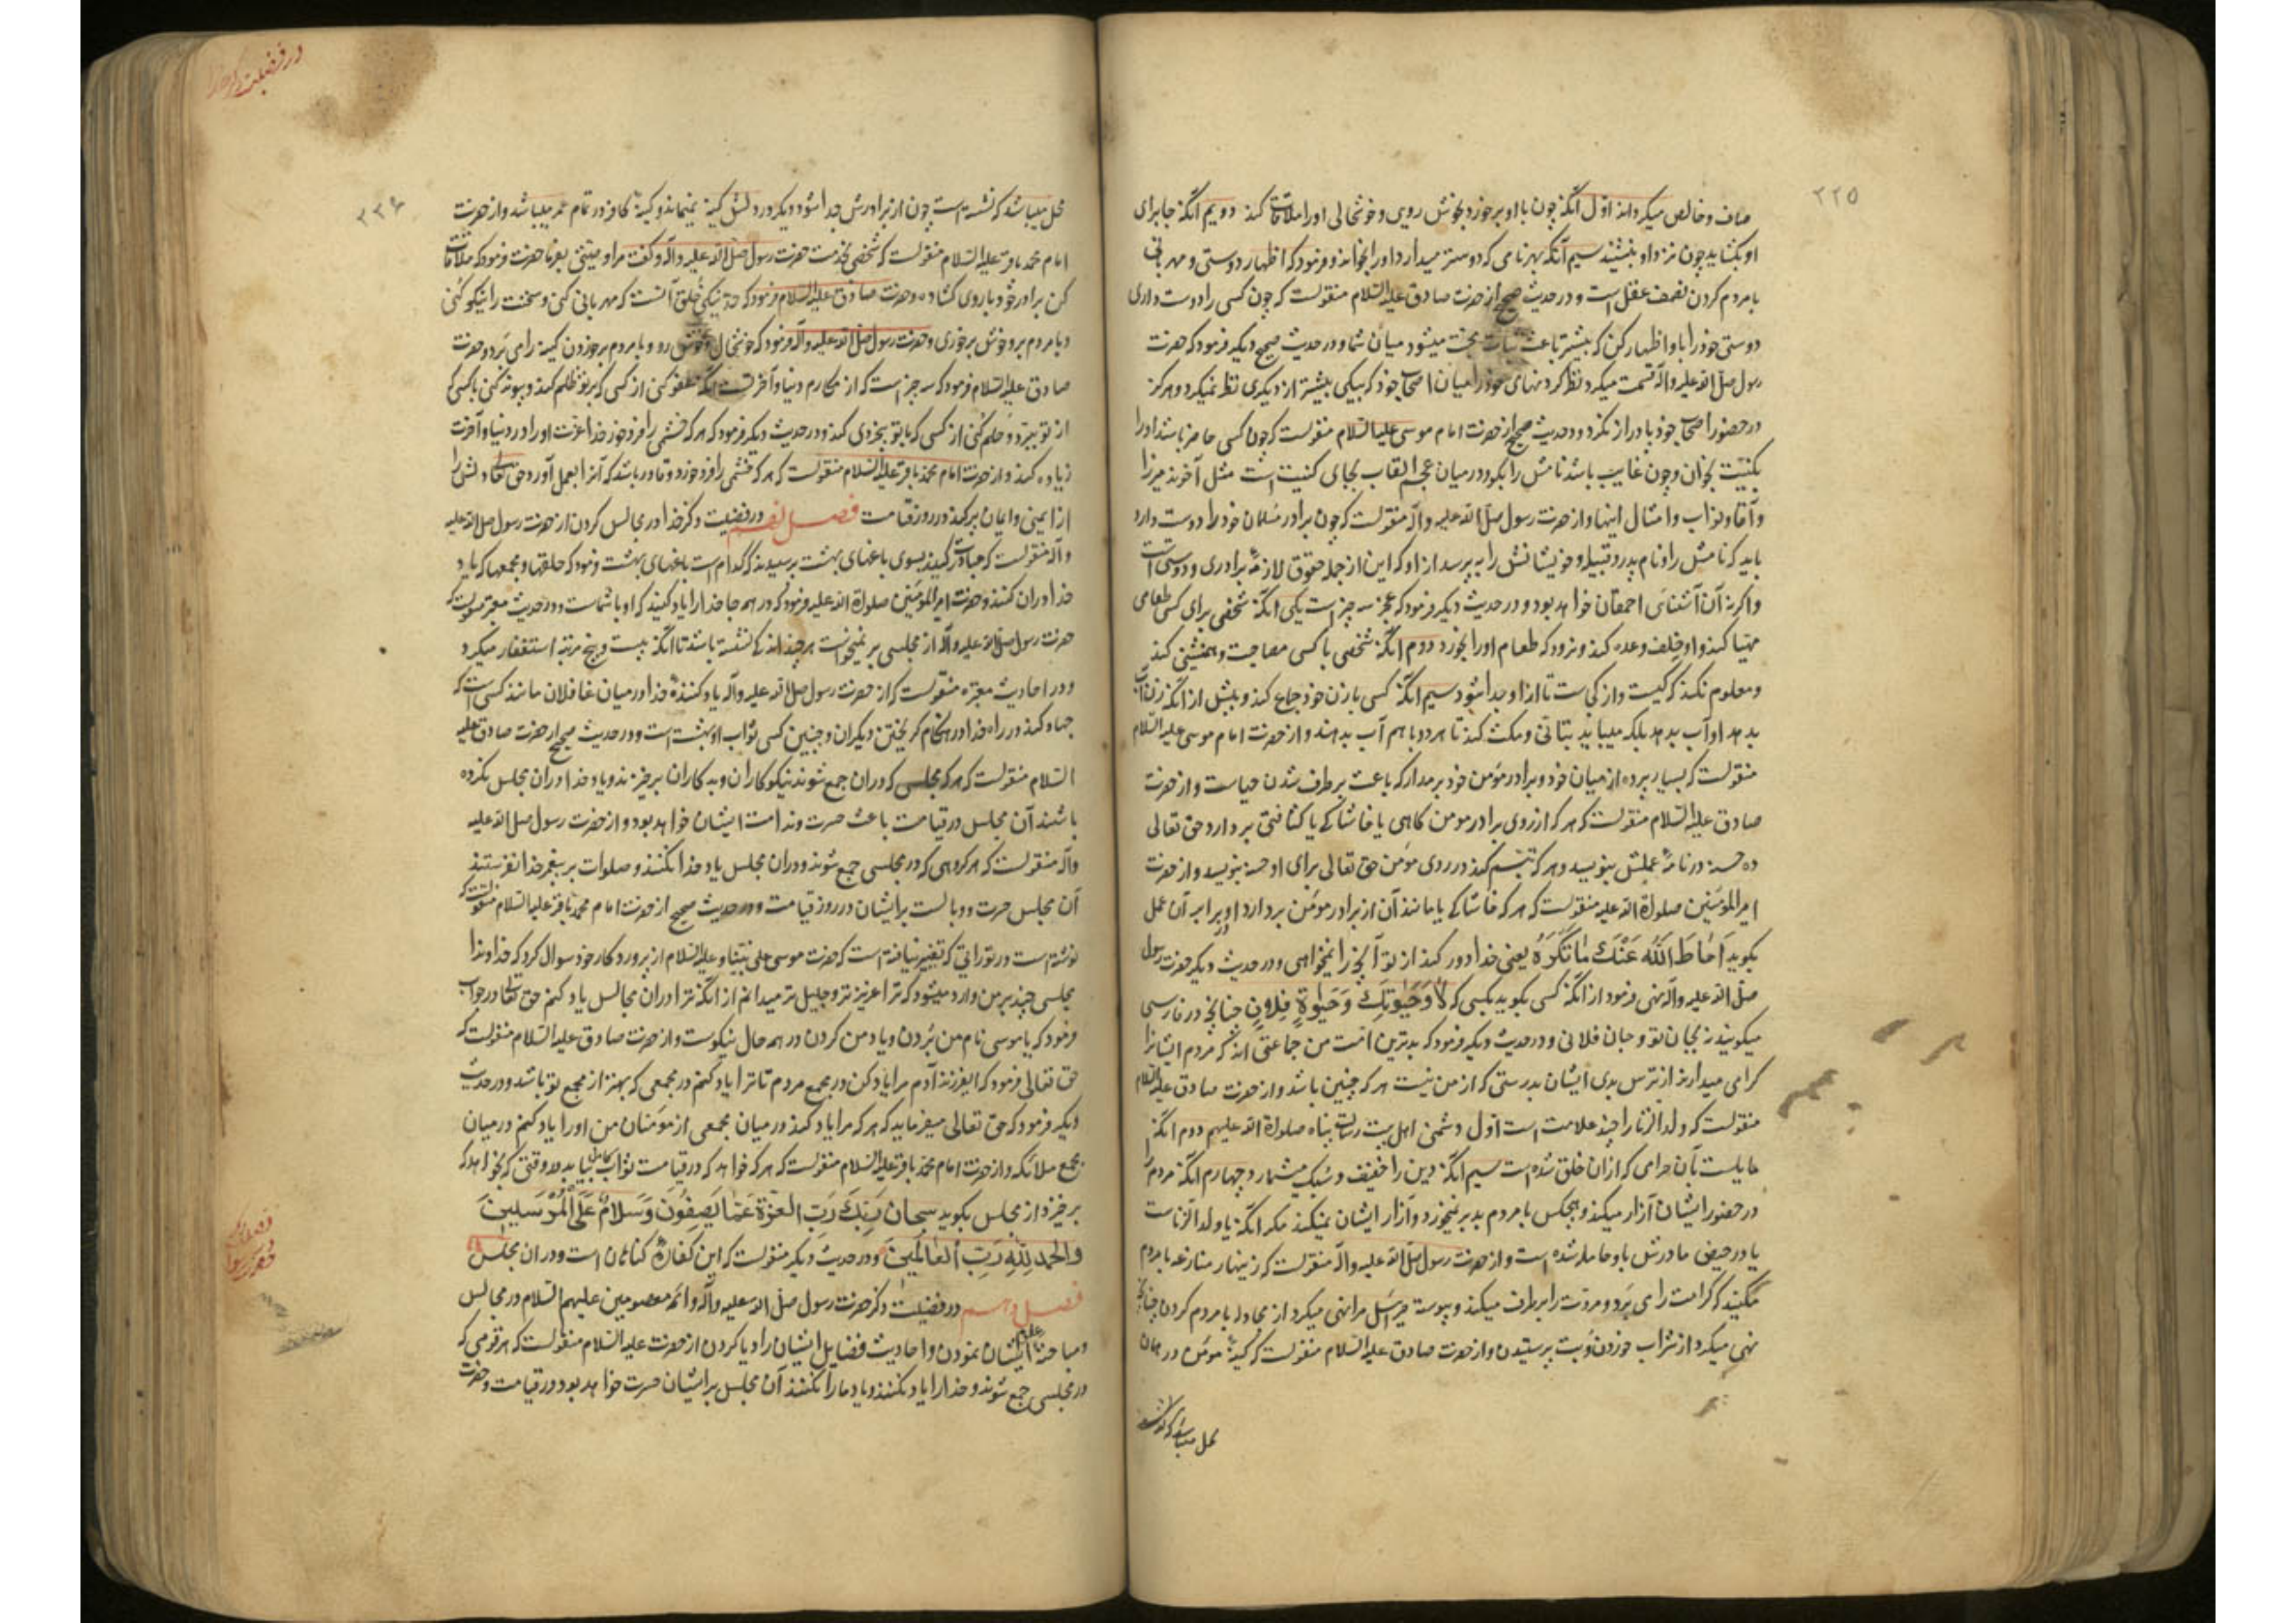 ۲۲۵
صاف و خالص میکرداند اوّل آنکه چون با او برخورد بخوش رویی و خوشحالی او را ملاقات کند دویم آنکه جا برای
او بکشاید چون نزد او بنشیند سیم آنکه بهر نامی که دوستر میدارد او را بخواند و فرمود که اظهار دوستی و مهربانی
با مردم کردن نصف عقل است و در حدیث صحیح از حضرت صادق علیه السّلام منقولست که چون کسی را دوست داری
دوستی خود را باو اظهار کن که بیشتر باعث ثبات محبت میشود میان شما و در حدیث صحیح دیگر فرمود که حضرت
رسول صلّی الله علیه و آله قسمت میکرد نظر کردنهای خود را میان اصحاب خود که بیکی بیشتر از دیکری نظر نمیکرد و هرکز
در حضور اصحاب خود پا دراز نکرد و در حدیث صحیح از حضرت امام موسی علیه السّلام منقولست که چون کسی حاضر باشد او را
بکنیّت بخوان و چون غایب باشد نامش را بکو و در میان عجم القاب بجای کنیت است مثل آخوند میرزا
و آقا و نواب و امثال اینها و از حضرت رسول صلّی الله علیه و آله منقولست که چون برادر مسلمان خود را دوست دارد
باید که نامش را و نام پدر و قبیله و خویشانش را بپرسد از او که این از جمله حقوق لازمهٔ برادری و دوستی است
و اکر نه آن آشنائی احمقان خواهد بود و در حدیث دیگر فرمود که عجز سه چیز است یکی آنکه شخصی برای کسی طعامی
مهیّا کند و او خلف وعده کند و نرود که طعام او را بخورد دوم آنکه شخصی با کسی مصاحبت و همنشینی کند
و معلوم نکند که کیست و از کجاست تا از او جدا شود سیم آنکه کسی با زن خود جماع کند و پیش از آنکه زن را آب
بدهد او آب بدهد بلکه میباید بتأنّی و مکث کند تا هر دو با هم آب بدهند و از حضرت امام موسی علیه السّلام
منقولست که بسیار پرده از میان خود و برادر مؤمن خود برمدار که باعث برطرف شدن حیاست و از حضرت
صادق علیه السّلام منقولست که هرکه از روی برادر مومن کاهی یا خاشاکی یا کثافتی بردارد حق تعالی
ده حسنه در نامهٔ عملش بنویسد و هرکه تبسّم کند در روی مؤمن حق تعالی برای او حسنه بنویسد و از حضرت
امیرالمؤمنین صلواة الله علیه منقولست که هرکه خاشاکی یا مانند آن از برادر مؤمن بردارد او در برابر آن عمل
بکوید اَمٰاطَ اللّٰهُ عَنْكَ مٰا تَكْرَهُ یعنی خدا دور کند از تو آنچه را نمیخواهی و در حدیث دیکر حضرت رسول
صلّی الله علیه و آله نهی فرمود از آنکه کسی بکوید بکسی که لٰا وَحَیٰوتِكَ وَ حَیٰوةِ فُلانٍ چنانچه در فارسی
میکویند نه بجان تو و جان فلانی و در حدیث دیکر فرمود که بدترین امّت من جماعتی‌اند که مردم ایشانرا
کرامی میدارند از ترس بدی ایشان بدرستی که از من نیست هرکه چنین باشد و از حضرت صادق علیه السّلام
منقولست که ولد الزنا را چند علامت است اوّل دشمنی اهل بیت رسالت پناه صلواة الله علیهم دوم آنکه
مایلست بآن حرامی که از ان خلق شده است سیم آنکه دین را خفیف و سبک میشمارد چهارم آنکه مردم را
در حضور ایشان آزار میکند و هیچکس با مردم بد بر نمیخورد و آزار ایشان نمیکند مکر آنکه یا ولد الزناست
یا در حیض مادرش باو حامله شده است و از حضرت رسول صلّی الله علیه و آله منقولست که زینهار منازعه با مردم
مکنید که کرامت را می‌برد و مروّت را برطرف میکند و پیوسته جبرئیل مرا نهی میکرد از مجادله با مردم کردن چنانچه
نهی میکرد از شراب خوردن و بت پرستیدن و از حضرت صادق علیه السّلام منقولست که کینهٔ مؤمن در همان
محل میباشد که نشسته
در فضیلت ذکر خدا
۲۲۶
محل میباشد که نشسته است چون از برادرش جدا شود دیکر در دلش کینه نمیماند و کینهٔ کافر در تمام عمر میباشد و از حضرت
امام محمد باقر علیه السّلام منقولست که شخصی بخدمت حضرت رسول صلّی الله علیه و آله و کفت مرا وصیتی بفرما حضرت فرمود که ملاقات
کن برادر خود با روی کشاده و حضرت صادق علیه السّلام فرمود که حدّ نیکی خلق آنست که مهربانی کنی و سخنت را نیکو کنی
و با مردم بروخوش برخوری و حضرت رسول صلّی الله علیه و آله فرمود که خوشحال و خوش رو با مردم برخوردن کینه را می‌برد و حضرت
صادق علیه السّلام فرمود که سه چیز است که از مکارم دنیا و آخرتست آنکه عفو کنی از کسی که بر تو ظلم کند و پیوند کنی با کسی که
از تو ببرّد و حلم کنی از کسی که با تو بیخردی کند و در حدیث دیکر فرمود که هرکه خشمی را فرو خورد خدا عزّت او را در دنیا و آخرت
زیاده کند و از حضرت امام محمد باقر علیه السّلام منقولست که هرکه خشمی را فرو خورد و قادر باشد که آنرا بعمل آورد حق تعالی دلش را
از ایمنی و ایمان پر کند در روز قیامت فصل نهم در فضیلت ذکر خدا در مجالس کردن از حضرت رسول صلی الله علیه
و آله منقولست که مبادرت کنید بسوی باغهای بهشت پرسیدند که کدام است باغهای بهشت فرمود که حلقها و مجمعها که یاد
خدا در ان کنند و حضرت امیرالمؤمنین صلواة الله علیه فرمود که در همه جا خدا را یاد کنید که او با شماست و در حدیث معتبر منقولست که
حضرت رسول صلّی الله علیه و آله از مجلسی بر نمیخواست هرچند اندک نشسته باشد تا آنکه بیست و پنج مرتبه استغفار میکرد
و در احادیث معتبره منقولست که از حضرت رسول صلّی الله علیه و آله یاد کنندهٔ خدا در میان غافلان مانند کسی است که
جهاد کند در راه خدا در هنکام کریختن دیکران و چنین کسی ثواب او بهشت است و در حدیث صحیح از حضرت صادق علیه
السّلام منقولست که هرکه مجلسی که در ان جمع شوند نیکوکاران و بدکاران برخیزند و یاد خدا در ان مجلس نکرده
باشند آن مجلس در قیامت باعث حسرت و ندامت ایشان خواهد بود و از حضرت رسول صلّی الله علیه
و آله منقولست که هر کروهی که در مجلسی جمع شوند و در ان مجلس یاد خدا نکنند و صلوات بر پیغمبر خدا نفرستند
آن مجلس حسرت و وبالست بر ایشان در روز قیامت و در حدیث صحیح از حضرت امام محمد باقر علیه السّلام منقولست که
نوشته است در توراتی که تغییر نیافته است که حضرت موسی علی نبیّنا و علیه السّلام از پروردکار خود سوال کرد که خداوندا
مجلسی چند بر من وارد میشود که ترا عزیزتر و جلیل‌تر میدانم از آنکه ترا در ان مجالس یاد کنم حق تعالی در جواب
فرمود که یا موسی نام من بُردن و یاد من کردن در همه حال نیکوست و از حضرت صادق علیه السّلام منقولست که
حق تعالی فرمود که ایفرزند آدم مرا یاد کن در مجمع مردم تا ترا یاد کنم در مجمعی که بهتر از مجمع تو باشد و در حدیث
دیکر فرمود که حق تعالی میفرماید که هرکه مرا یاد کند در میان مجمعی از مؤمنان من او را یاد کنم در میان
مجمع ملائکه و از حضرت امام محمد باقر علیه السّلام منقولست که هرکه خواهد که در قیامت ثواب کامل بیابد در وقتی که بخواهد که
برخیزد از مجلس بکوید سبحان رَبِّكَ رَبِّ العِزّة عَمّٰا یَصِفُونَ وَ سَلامٌ عَلَی الْمُرْسَلینَ
وَ الحمد لِلّٰهِ رَبِّ الْعٰالَمینَ و در حدیث دیکر منقولست که این کفارهٔ کناهان است در ان مجلس
فصل دهم در فضیلت ذکر حضرت رسول صلّی الله علیه و آله و ائمه معصومین علیهم السّلام در مجالس
و مباحثه علوم ایشان نمودن و احادیث فضایل ایشان را یاد کردن از حضرت علیه السّلام منقولست که هر قومی که
در مجلسی جمع شوند و خدا را یاد نکنند و یاد ما را نکنند آن مجلس بر ایشان حسرت خواهد بود در قیامت و حضرت